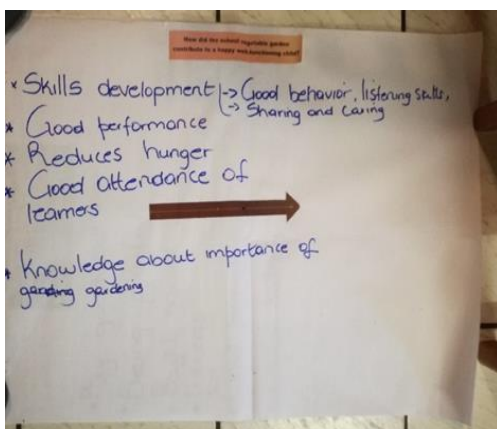 How did the school vegetable garden
contribute to a happy well-functioning child?
* Skills development -> Good behavior, listening skills,
-> Sharing and Caring
* Good performance
* Reduces hunger
* Good attendance of
learners
* Knowledge about importance of
gardening